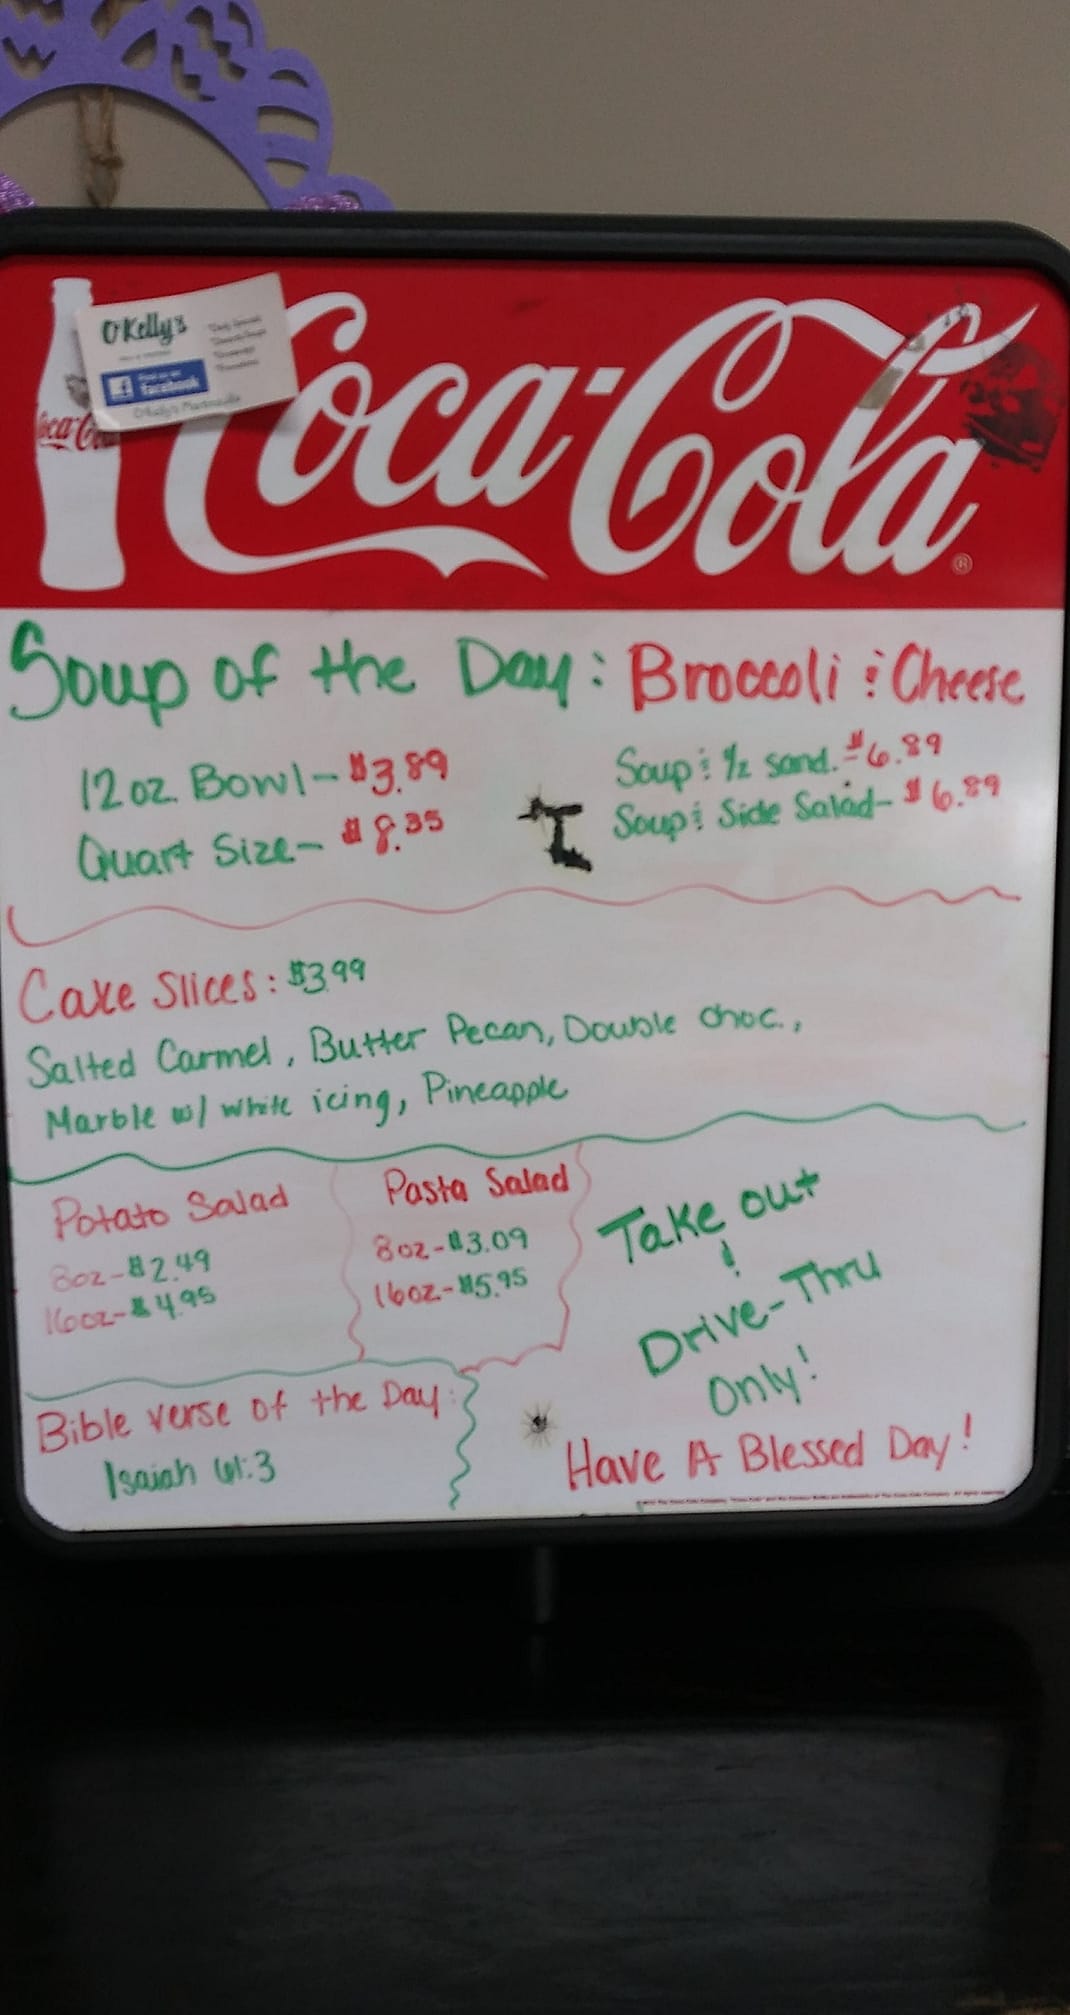 O'Kelly's
facebook
Coca-Cola
Coca-Cola
Soup of the Day: Broccoli & Cheese
12 oz. Bowl- $3.89
Quart Size- $8.35
Soup & 1/2 sand.- $6.89
Soup & Side Salad- $6.89
Cake Slices: $3.99
Salted Carmel, Butter Pecan, Double choc.,
Marble w/ white icing, Pineapple
Potato Salad
8oz-$2.49
16oz-$4.95
Pasta Salad
8oz-$3.09
16oz-$5.95
Take out
&
Drive-Thru
Only!
Bible verse of the Day:
Isaiah 61:3
Have A Blessed Day!